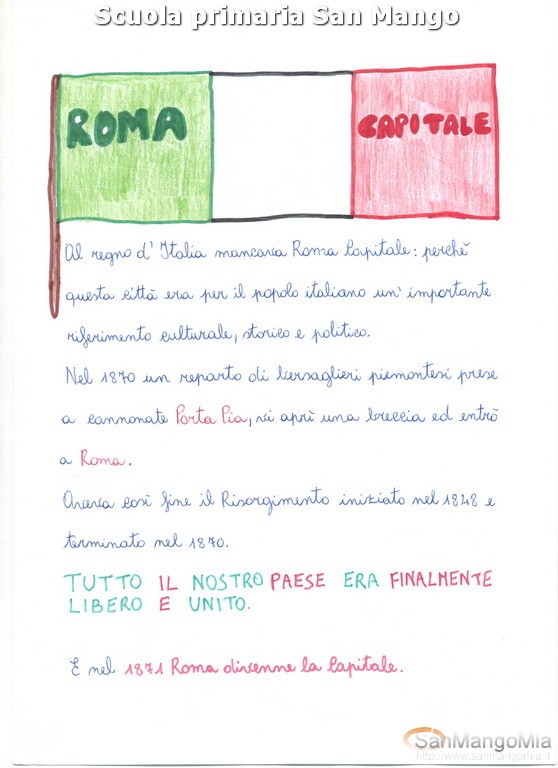 Scuola primaria San Mango
ROMA CAPITALE
Al regno d'Italia mancava Roma Capitale: perchè
questa città era per il popolo italiano un'importante
riferimento culturale, storico e politico.
Nel 1870 un reparto di bersaglieri piemontesi prese
a cannonate Porta Pia, vi aprì una breccia ed entrò
a Roma.
Aveva così fine il Risorgimento iniziato nel 1848 e
terminato nel 1870.
TUTTO IL NOSTRO PAESE ERA FINALMENTE
LIBERO E UNITO.
E nel 1871 Roma divenne la Capitale.
SanMangoMia
http://www.sanmangomia.it